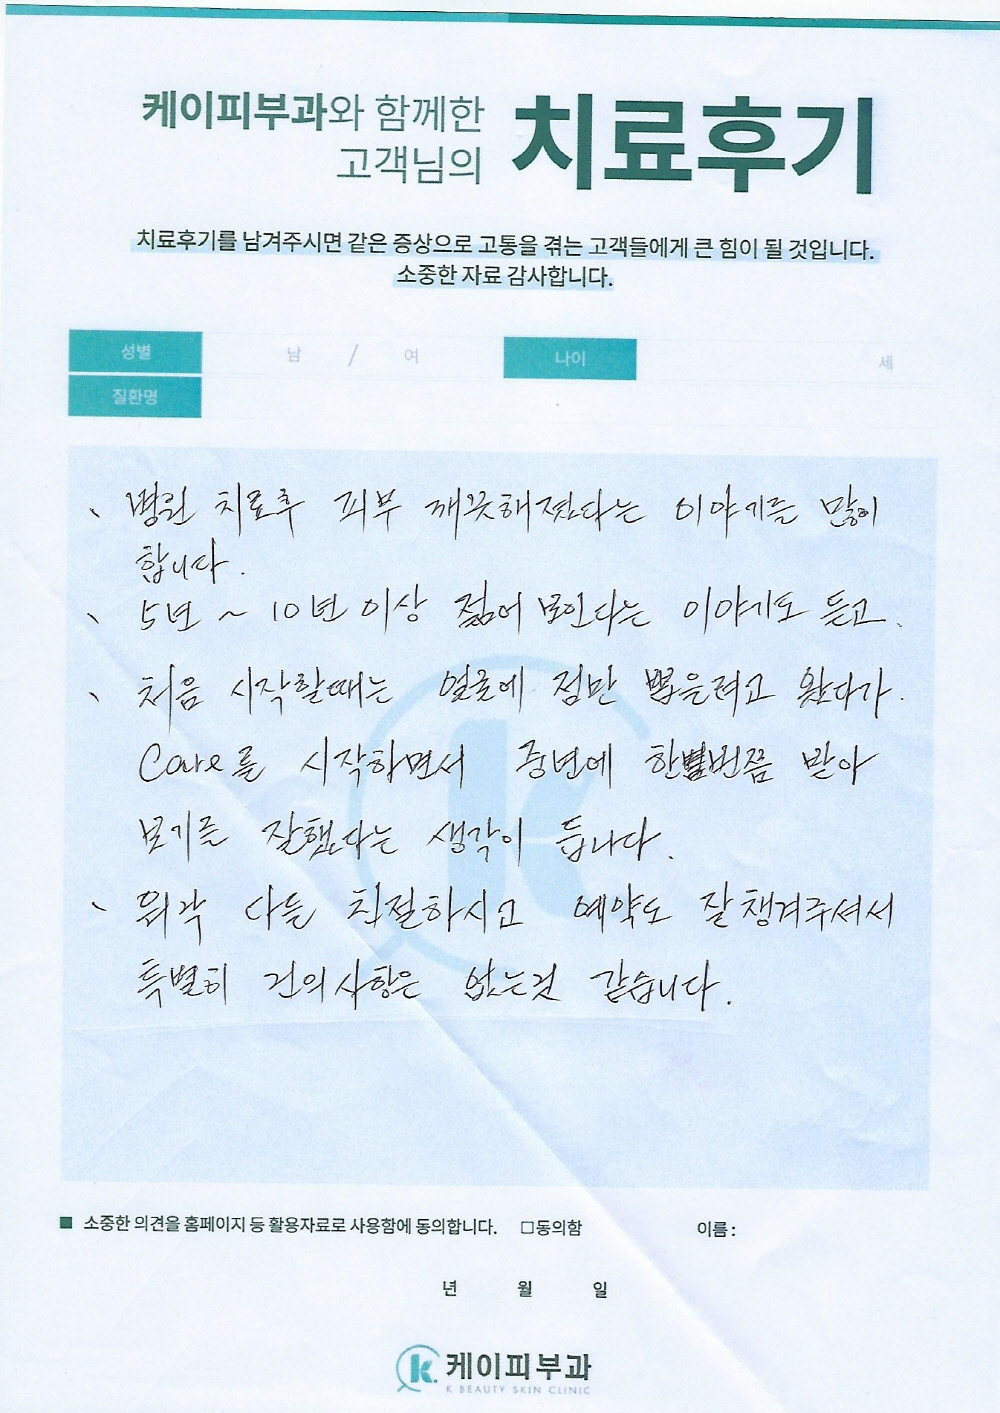 케이피부과와 함께한
고객님의
치료후기
치료후기를 남겨주시면 같은 증상으로 고통을 겪는 고객들에게 큰 힘이 될 것입니다.
소중한 자료 감사합니다.
성별 남 / 여 나이 세
질환명
、 병원 치료후 피부 깨끗해졌다는 이야기를 많이
합니다.
、 5년 ~ 10년 이상 젊어 보인다는 이야기도 듣고.
、 처음 시작할때는 얼굴에 점만 뽑을려고 왔다가.
Care를 시작하면서 중년에 한번쯤 받아
보기를 잘했다는 생각이 듭니다.
、 다들 친절하시고 예약도 잘 챙겨주셔서
특별히 건의사항은 없는것 같습니다.
■ 소중한 의견을 홈페이지 등 활용자료로 사용함에 동의합니다. □동의함 이름 :
년 월 일
k. 케이피부과
K BEAUTY SKIN CLINIC